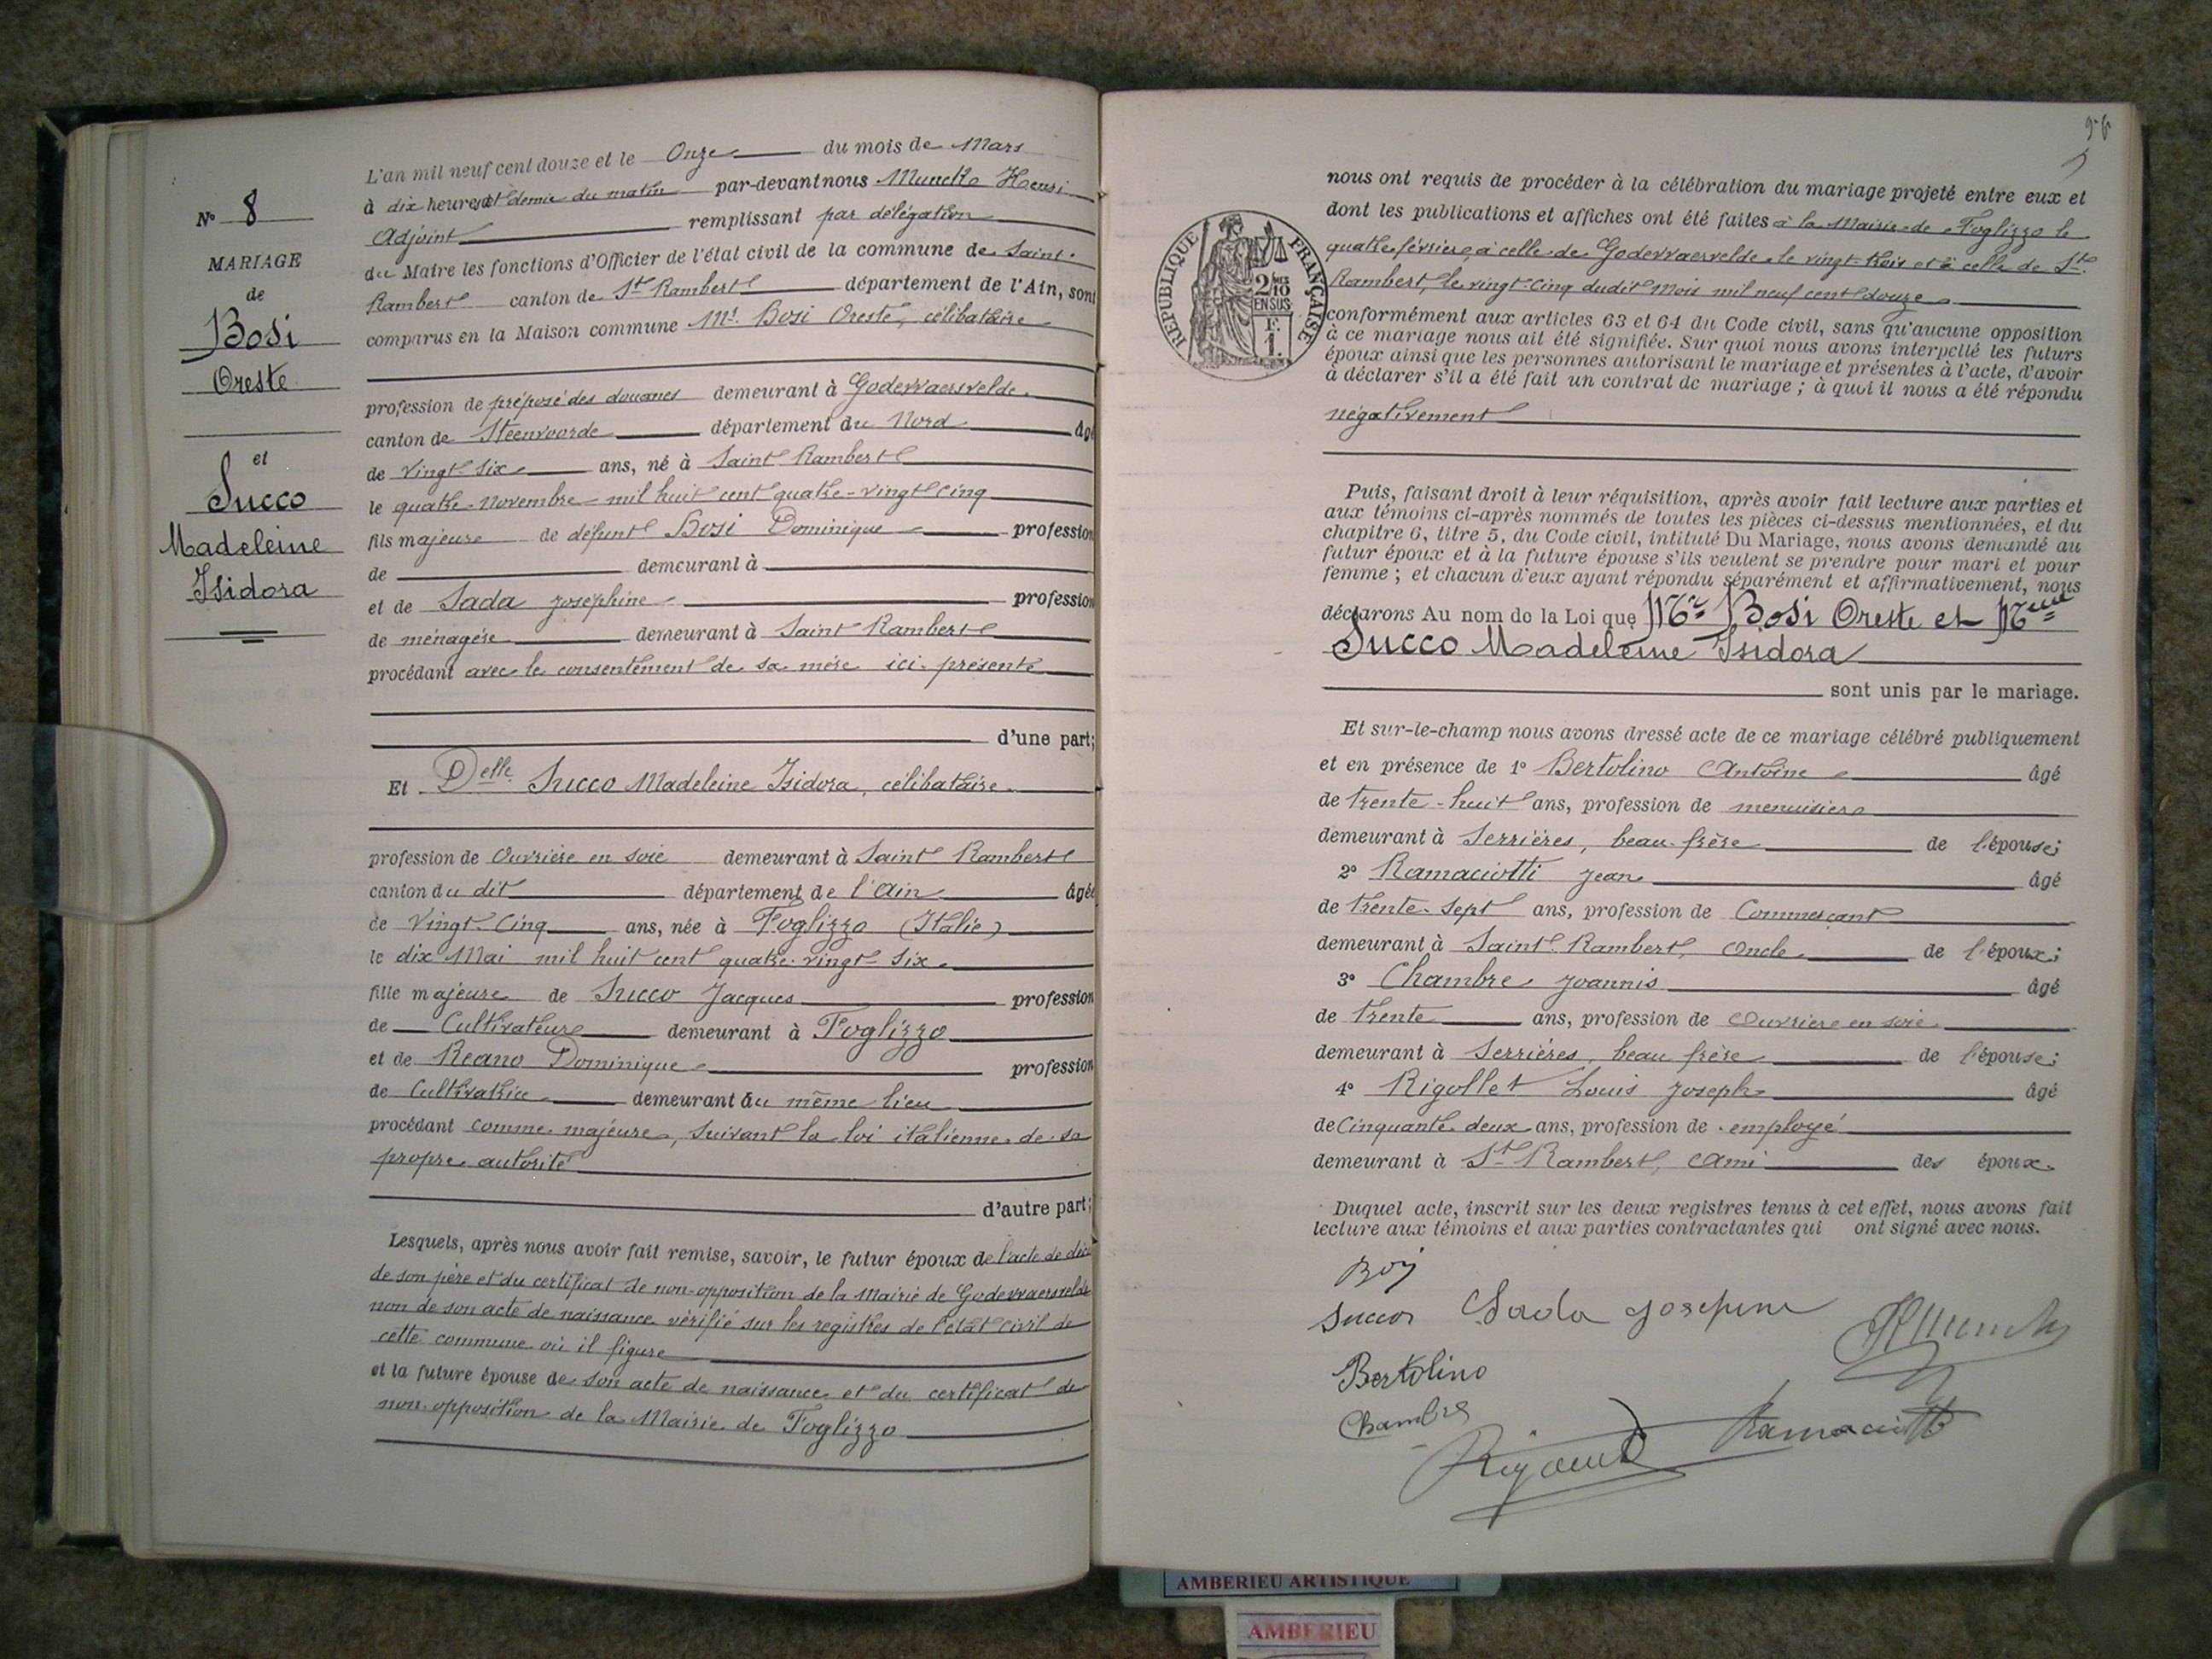 N° 8
MARIAGE
de
Bosi
Oreste
et
Succo
Madeleine
Isidora
L'an mil neuf cent douze et le Onze du mois de Mars
à dix heures et demie du matin par-devant nous Munck Henri
Adjoint remplissant par délégation
du Maire les fonctions d'Officier de l'état civil de la commune de Saint-
Rambert canton de St Rambert département de l'Ain, sont
comparus en la Maison commune Mr. Bosi Oreste, célibataire
profession de préposé des douanes demeurant à Godewaersvelde
canton de Steenvoorde département du Nord âgé
de vingt-six ans, né à Saint Rambert
le quatre Novembre mil huit cent quatre-vingt cinq
fils majeur de défunt Bosi Dominique profession
de demeurant à
et de Sada Joséphine profession
de ménagère demeurant à Saint Rambert
procédant avec le consentement de sa mère ici présente
d'une part;
Et Delle Succo Madeleine Isidora, célibataire
profession de Ouvrière en soie demeurant à Saint Rambert
canton du dit département de l'Ain âgée
de Vingt-Cinq ans, née à Foglizzo (Italie)
le dix Mai mil huit cent quatre-vingt six
fille majeure de Succo Jacques profession
de Cultivateur demeurant à Foglizzo
et de Reano Dominique profession
de Cultivatrice demeurant au même lieu
procédant comme majeure, suivant la loi italienne de sa
propre autorité
d'autre part;
Lesquels, après nous avoir fait remise, savoir, le futur époux de l'acte de décès
de son père et du certificat de non-opposition de la Mairie de Godewaersvelde
non de son acte de naissance vérifié sur les registres de l'état civil de
cette commune où il figure
et la future épouse de son acte de naissance et du certificat de
non-opposition de la Mairie de Foglizzo
RÉPUBLIQUE FRANÇAISE
2/10
EN SUS
1 F.
nous ont requis de procéder à la célébration du mariage projeté entre eux et
dont les publications et affiches ont été faites à la Mairie de Foglizzo le
quatre février, à celle de Godewaersvelde le vingt-trois et à celle de St.
Rambert, le vingt-cinq dudit mois mil neuf cent douze
conformément aux articles 63 et 64 du Code civil, sans qu'aucune opposition
à ce mariage nous ait été signifiée. Sur quoi nous avons interpellé les futurs
époux ainsi que les personnes autorisant le mariage et présentes à l'acte, d'avoir
à déclarer s'il a été fait un contrat de mariage ; à quoi il nous a été répondu
négativement
Puis, faisant droit à leur réquisition, après avoir fait lecture aux parties et
aux témoins ci-après nommés de toutes les pièces ci-dessus mentionnées, et du
chapitre 6, titre 5, du Code civil, intitulé Du Mariage, nous avons demandé au
futur époux et à la future épouse s'ils veulent se prendre pour mari et pour
femme ; et chacun d'eux ayant répondu séparément et affirmativement, nous
déclarons Au nom de la Loi que Mr Bosi Oreste et Melle
Succo Madeleine Isidora
sont unis par le mariage.
Et sur-le-champ nous avons dressé acte de ce mariage célébré publiquement
et en présence de 1° Bertolino Antoine âgé
de trente-huit ans, profession de menuisier
demeurant à Serrières, beau-frère de l'épouse;
2° Ramaciotti Jean âgé
de trente-sept ans, profession de Commerçant
demeurant à Saint-Rambert, Oncle de l'époux;
3° Chambre Joannis âgé
de trente ans, profession de Ouvrier en soie
demeurant à Serrières, beau frère de l'épouse;
4° Rigollet Louis Joseph âgé
de Cinquante-deux ans, profession de employé
demeurant à St Rambert, Ami des époux.
Duquel acte, inscrit sur les deux registres tenus à cet effet, nous avons fait
lecture aux témoins et aux parties contractantes qui ont signé avec nous.
Bosi
Succo Sada Josephine HMunck
Bertolino
Chambre
Ramaciotti
AMBERIEU ARTISTIQUE
AMBERIEU